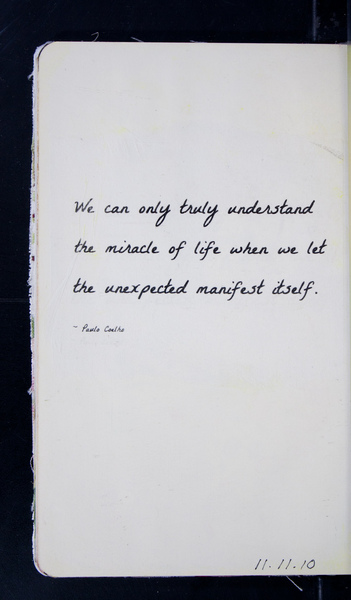 We can only truly understand
the miracle of life when we let
the unexpected manifest itself.
~ Paulo Coelho
11.11.10